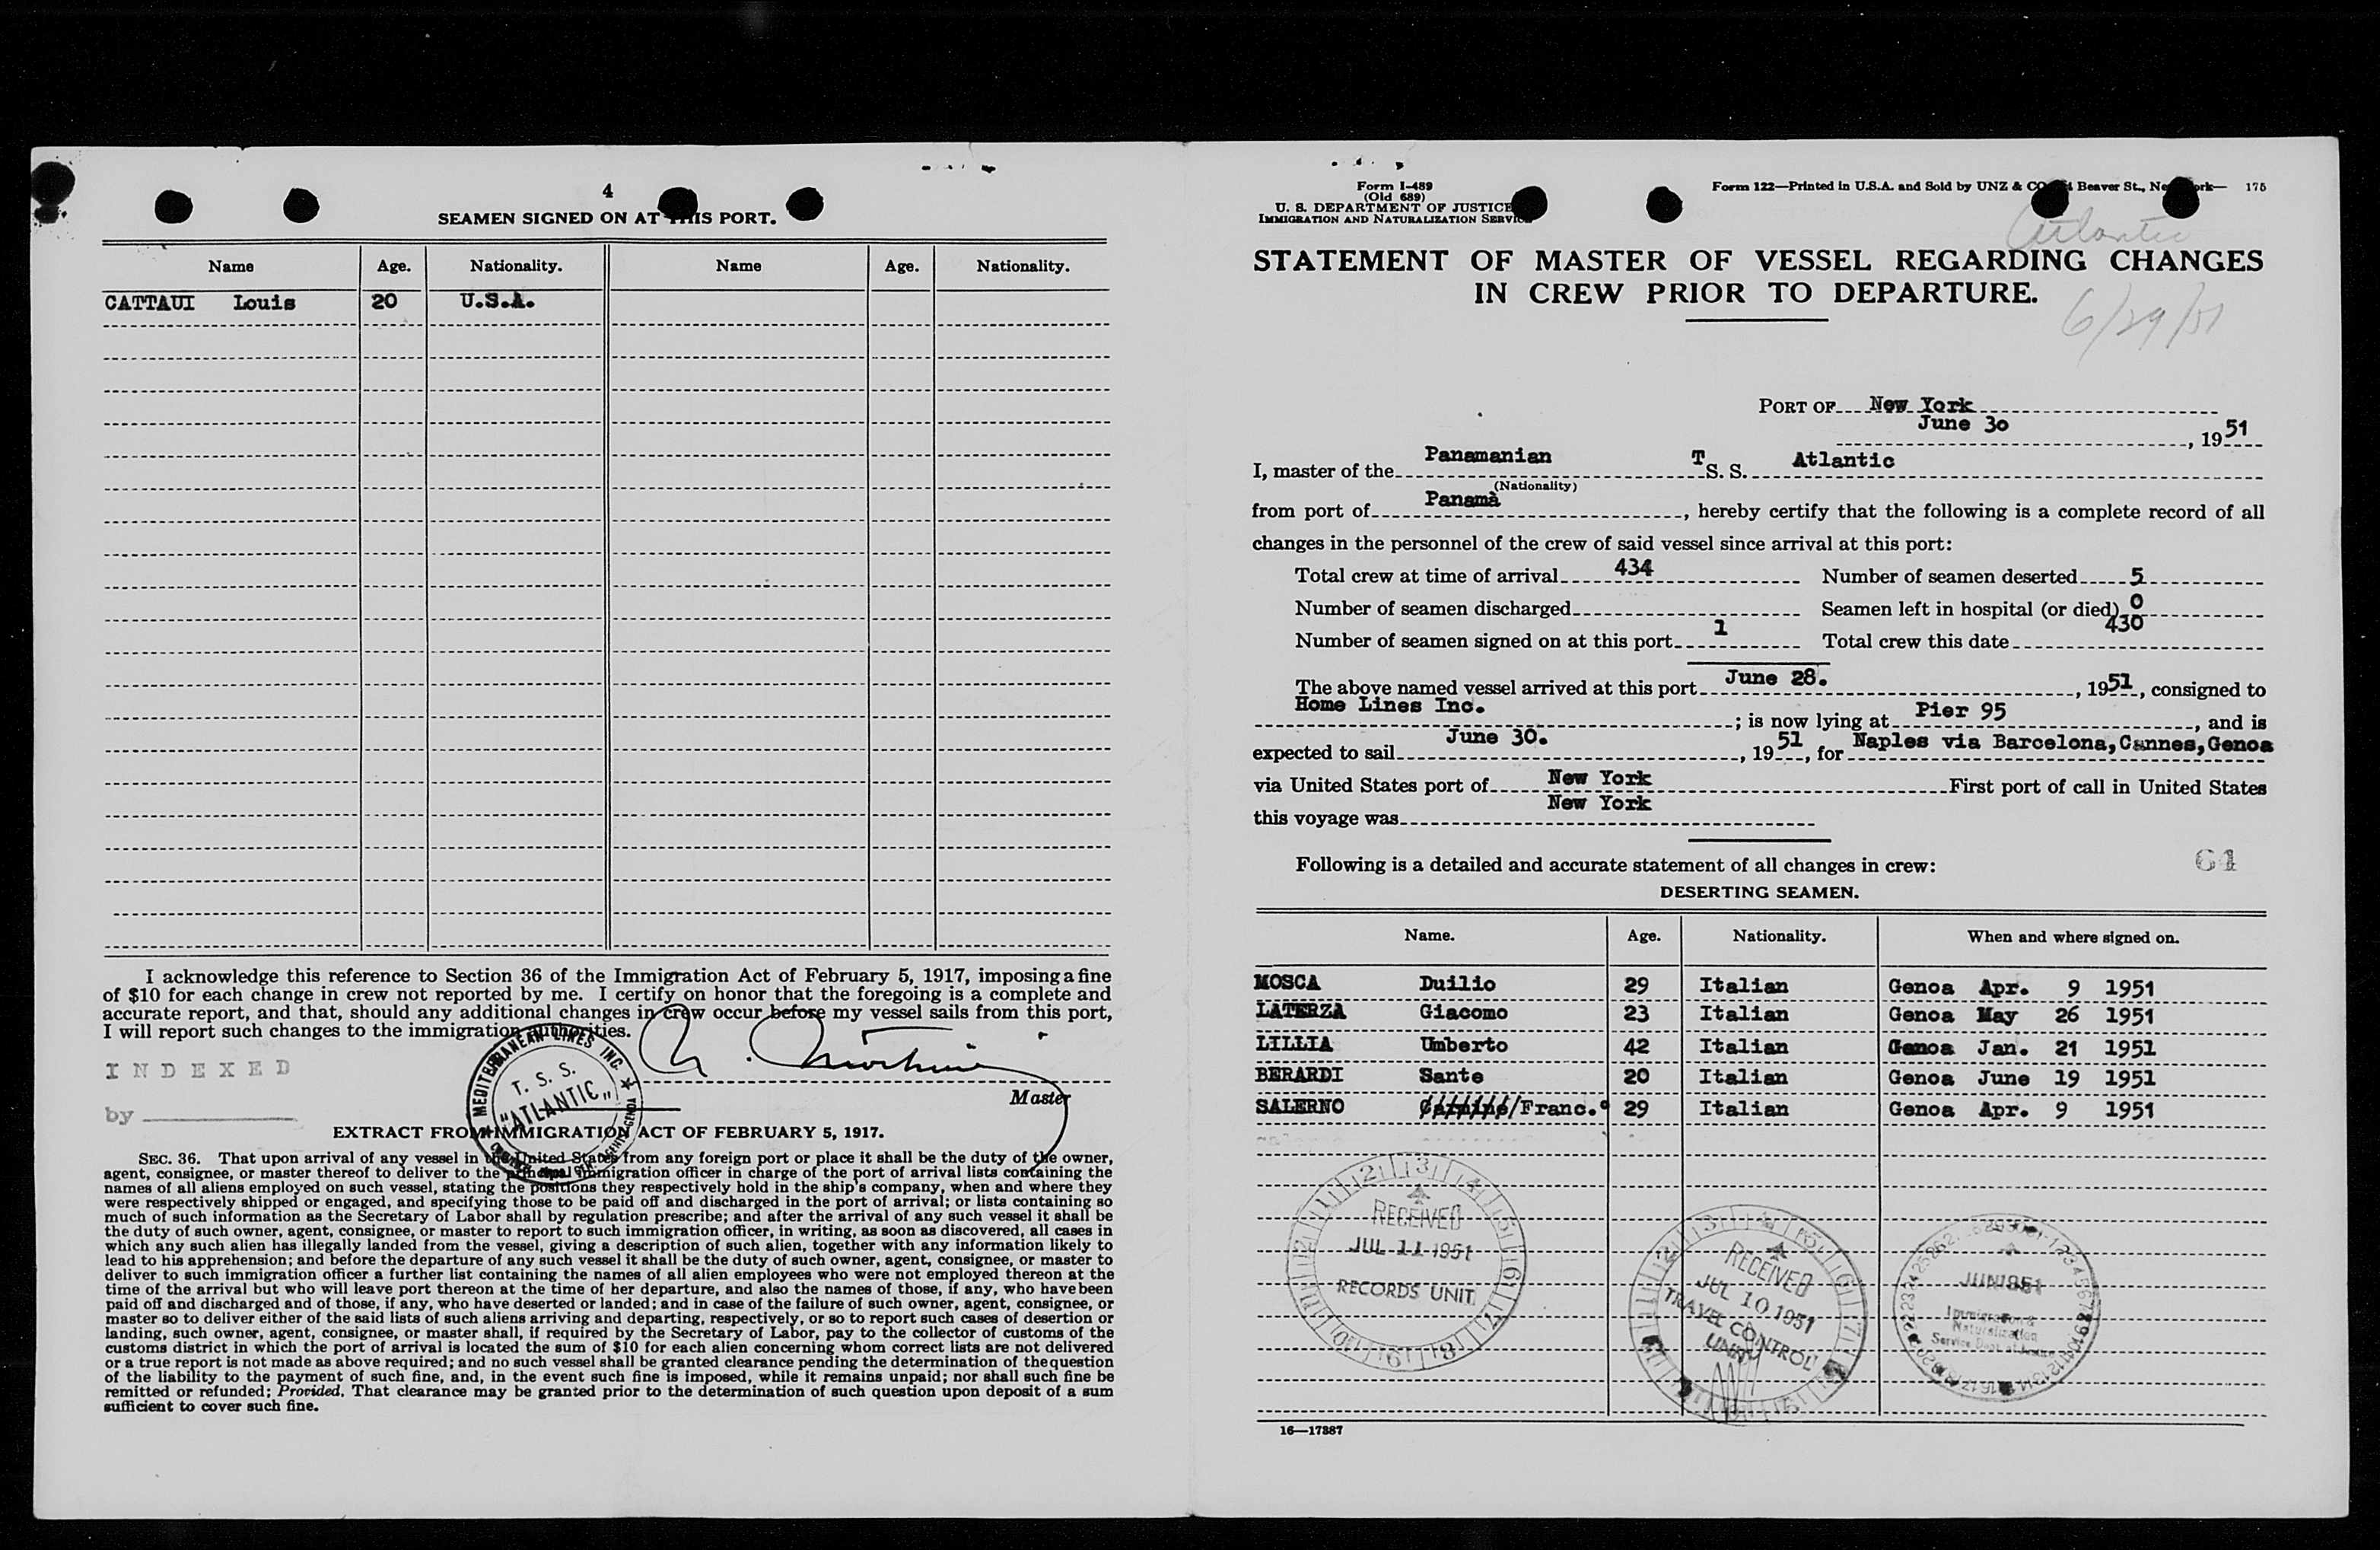 4
SEAMEN SIGNED ON AT THIS PORT.
Name Age. Nationality. Name Age. Nationality.
CATTAUI Louis 20 U.S.A.
I acknowledge this reference to Section 36 of the Immigration Act of February 5, 1917, imposing a fine
of $10 for each change in crew not reported by me. I certify on honor that the foregoing is a complete and
accurate report, and that, should any additional changes in crew occur before my vessel sails from this port,
I will report such changes to the immigration authorities.
INDEXED
by
MEDITERRANEAN LINES INC. ★
T. S. S.
"ATLANTIC"
Master
EXTRACT FROM IMMIGRATION ACT OF FEBRUARY 5, 1917.
SEC. 36. That upon arrival of any vessel in the United States from any foreign port or place it shall be the duty of the owner,
agent, consignee, or master thereof to deliver to the principal immigration officer in charge of the port of arrival lists containing the
names of all aliens employed on such vessel, stating the positions they respectively hold in the ship's company, when and where they
were respectively shipped or engaged, and specifying those to be paid off and discharged in the port of arrival; or lists containing so
much of such information as the Secretary of Labor shall by regulation prescribe; and after the arrival of any such vessel it shall be
the duty of such owner, agent, consignee, or master to report to such immigration officer, in writing, as soon as discovered, all cases in
which any such alien has illegally landed from the vessel, giving a description of such alien, together with any information likely to
lead to his apprehension; and before the departure of any such vessel it shall be the duty of such owner, agent, consignee, or master to
deliver to such immigration officer a further list containing the names of all alien employees who were not employed thereon at the
time of the arrival but who will leave port thereon at the time of her departure, and also the names of those, if any, who have been
paid off and discharged and of those, if any, who have deserted or landed; and in case of the failure of such owner, agent, consignee, or
master so to deliver either of the said lists of such aliens arriving and departing, respectively, or so to report such cases of desertion or
landing, such owner, agent, consignee, or master shall, if required by the Secretary of Labor, pay to the collector of customs of the
customs district in which the port of arrival is located the sum of $10 for each alien concerning whom correct lists are not delivered
or a true report is not made as above required; and no such vessel shall be granted clearance pending the determination of the question
of the liability to the payment of such fine, and, in the event such fine is imposed, while it remains unpaid; nor shall such fine be
remitted or refunded; Provided, That clearance may be granted prior to the determination of such question upon deposit of a sum
sufficient to cover such fine.
Form I-489
(Old 689)
U. S. DEPARTMENT OF JUSTICE
IMMIGRATION AND NATURALIZATION SERVICE
Form 122—Printed in U.S.A. and Sold by UNZ & CO Beaver St., New York— 175
Atlantic
STATEMENT OF MASTER OF VESSEL REGARDING CHANGES
IN CREW PRIOR TO DEPARTURE.
6/29/51
PORT OF New York
June 30, 1951
I, master of the Panamanian T S. S. Atlantic
(Nationality)
from port of Panamà, hereby certify that the following is a complete record of all
changes in the personnel of the crew of said vessel since arrival at this port:
Total crew at time of arrival 434 Number of seamen deserted 5
Number of seamen discharged Seamen left in hospital (or died) 0
Number of seamen signed on at this port 1 Total crew this date 430
The above named vessel arrived at this port June 28., 1951, consigned to
Home Lines Inc.; is now lying at Pier 95, and is
expected to sail June 30., 1951, for Naples via Barcelona,Cannes,Genoa
via United States port of New York First port of call in United States
this voyage was New York
Following is a detailed and accurate statement of all changes in crew:
64
DESERTING SEAMEN.
Name. Age. Nationality. When and where signed on.
MOSCA Duilio 29 Italian Genoa Apr. 9 1951
LATERZA Giacomo 23 Italian Genoa May 26 1951
LILLIA Umberto 42 Italian Genoa Jan. 21 1951
BERARDI Sante 20 Italian Genoa June 19 1951
SALERNO Carmine/Franc.° 29 Italian Genoa Apr. 9 1951
RECEIVED
JUL 11 1951
RECORDS UNIT
RECEIVED
JUL 10 1951
TRAVEL CONTROL
UNIT
JUN 1951
Immigration &
Naturalization
Service Dept. of Justice
16—17387